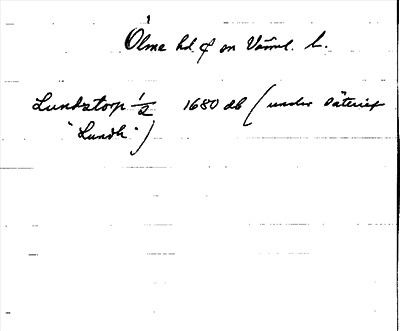 Ölme hd o on Värml. l.
Lundstorp 1/2 1680 db (under Säteriet
"Lundh".)